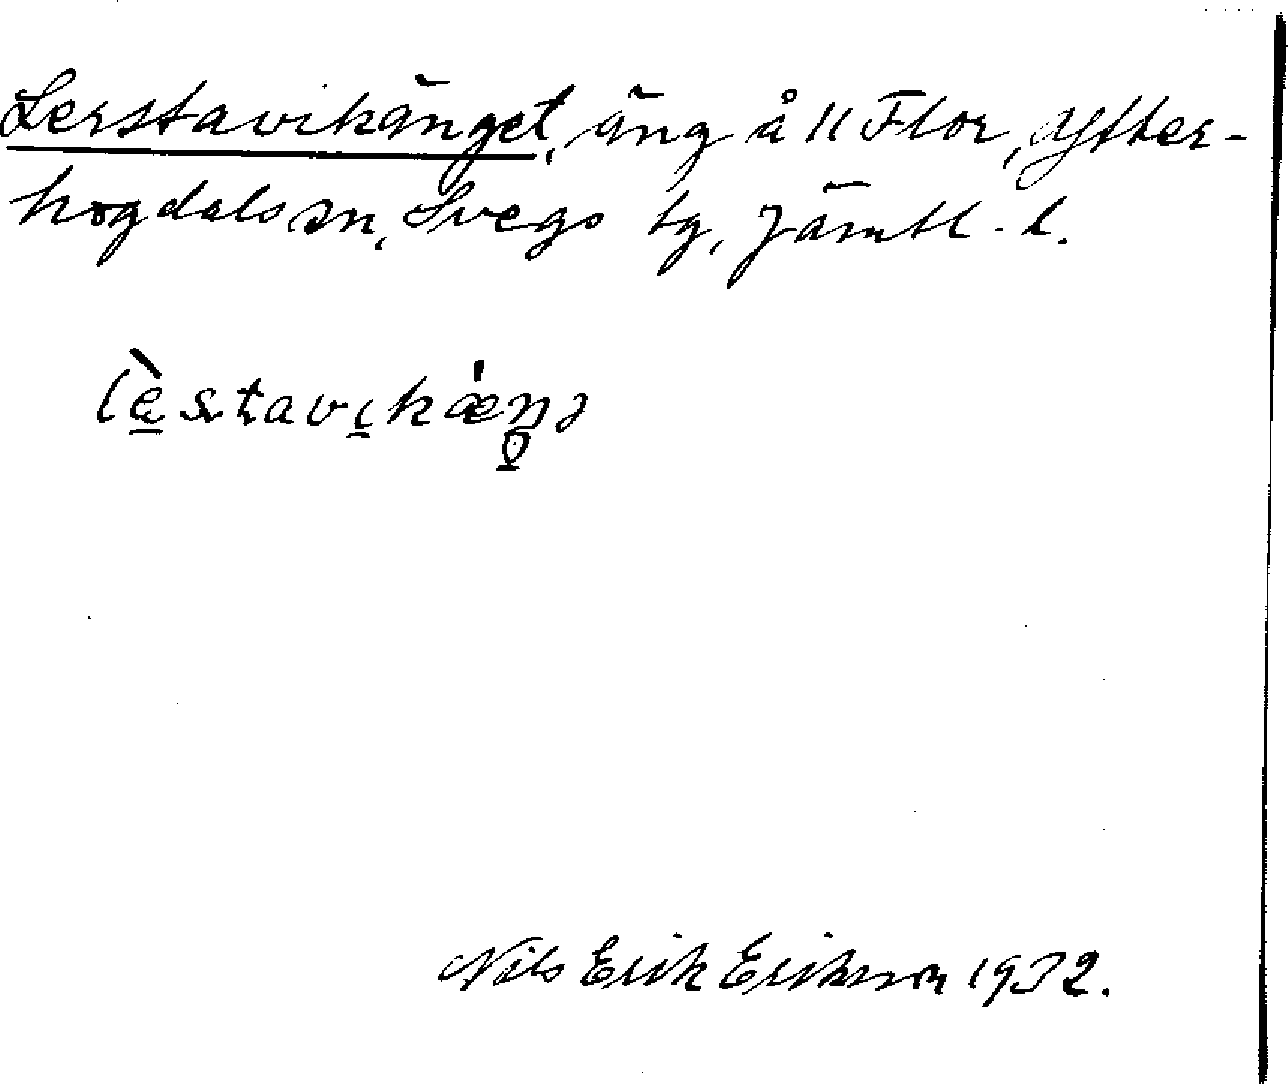 Lerstavikänget, äng å 11 Flor, Ytter-
hogdals sn, Svegs tg, Jämtl. l.
lèstavikǽŋə
Nils Erik Erikson 1932.